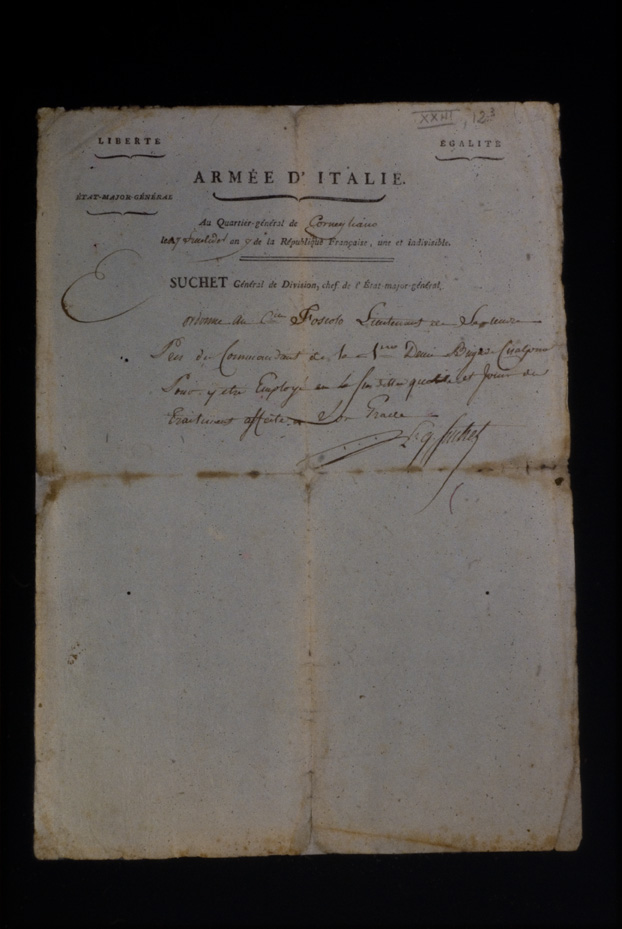 XXIII, 12.3
LIBERTÉ
ÉGALITÉ
ARMÉE D'ITALIE.
ÉTAT-MAJOR-GÉNÉRAL
Au Quartier-général de Cornegliano
le 27 an 7 de la République Française, une et indivisible.
SUCHET Général de Division, chef de l'État-major-général,
ordonne au Cen Foscolo Lieutenant de
du Commandant de la 1ere Demi Brigade Cisalpine
Pour y être Employé en la et Jouir du
traitement affecté a Son Grade
Suchet